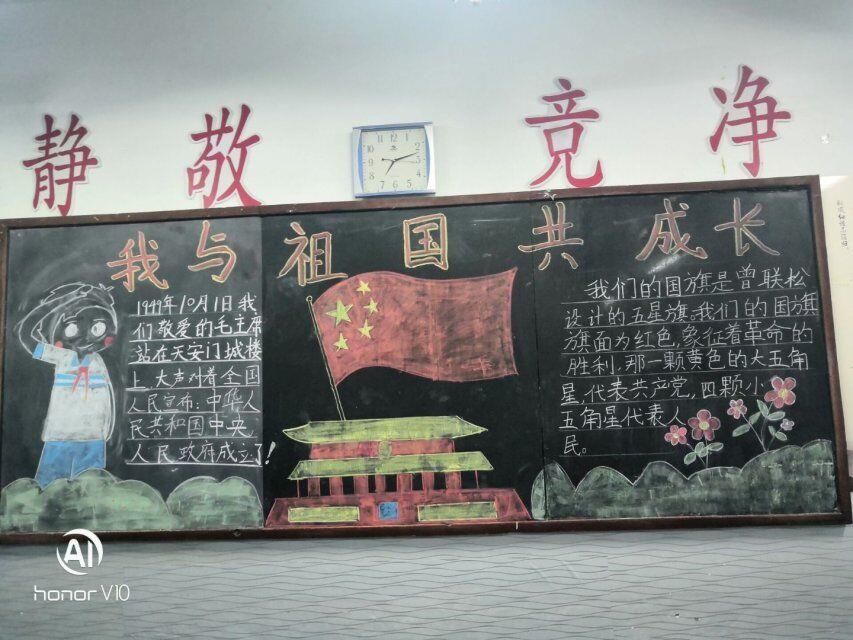 静 敬 竞 净
我与祖国共成长
1949年10月1日我
们敬爱的毛主席
站在天安门城楼
上，大声对着全国
人民宣布：中华人
民共和国中央
人民政府成立了！
我们的国旗是曾联松
设计的五星旗，我们的国旗
旗面为红色，象征着革命的
胜利，那一颗黄色的大五角
星，代表共产党，四颗小
五角星代表人
民。
AI
honor V10